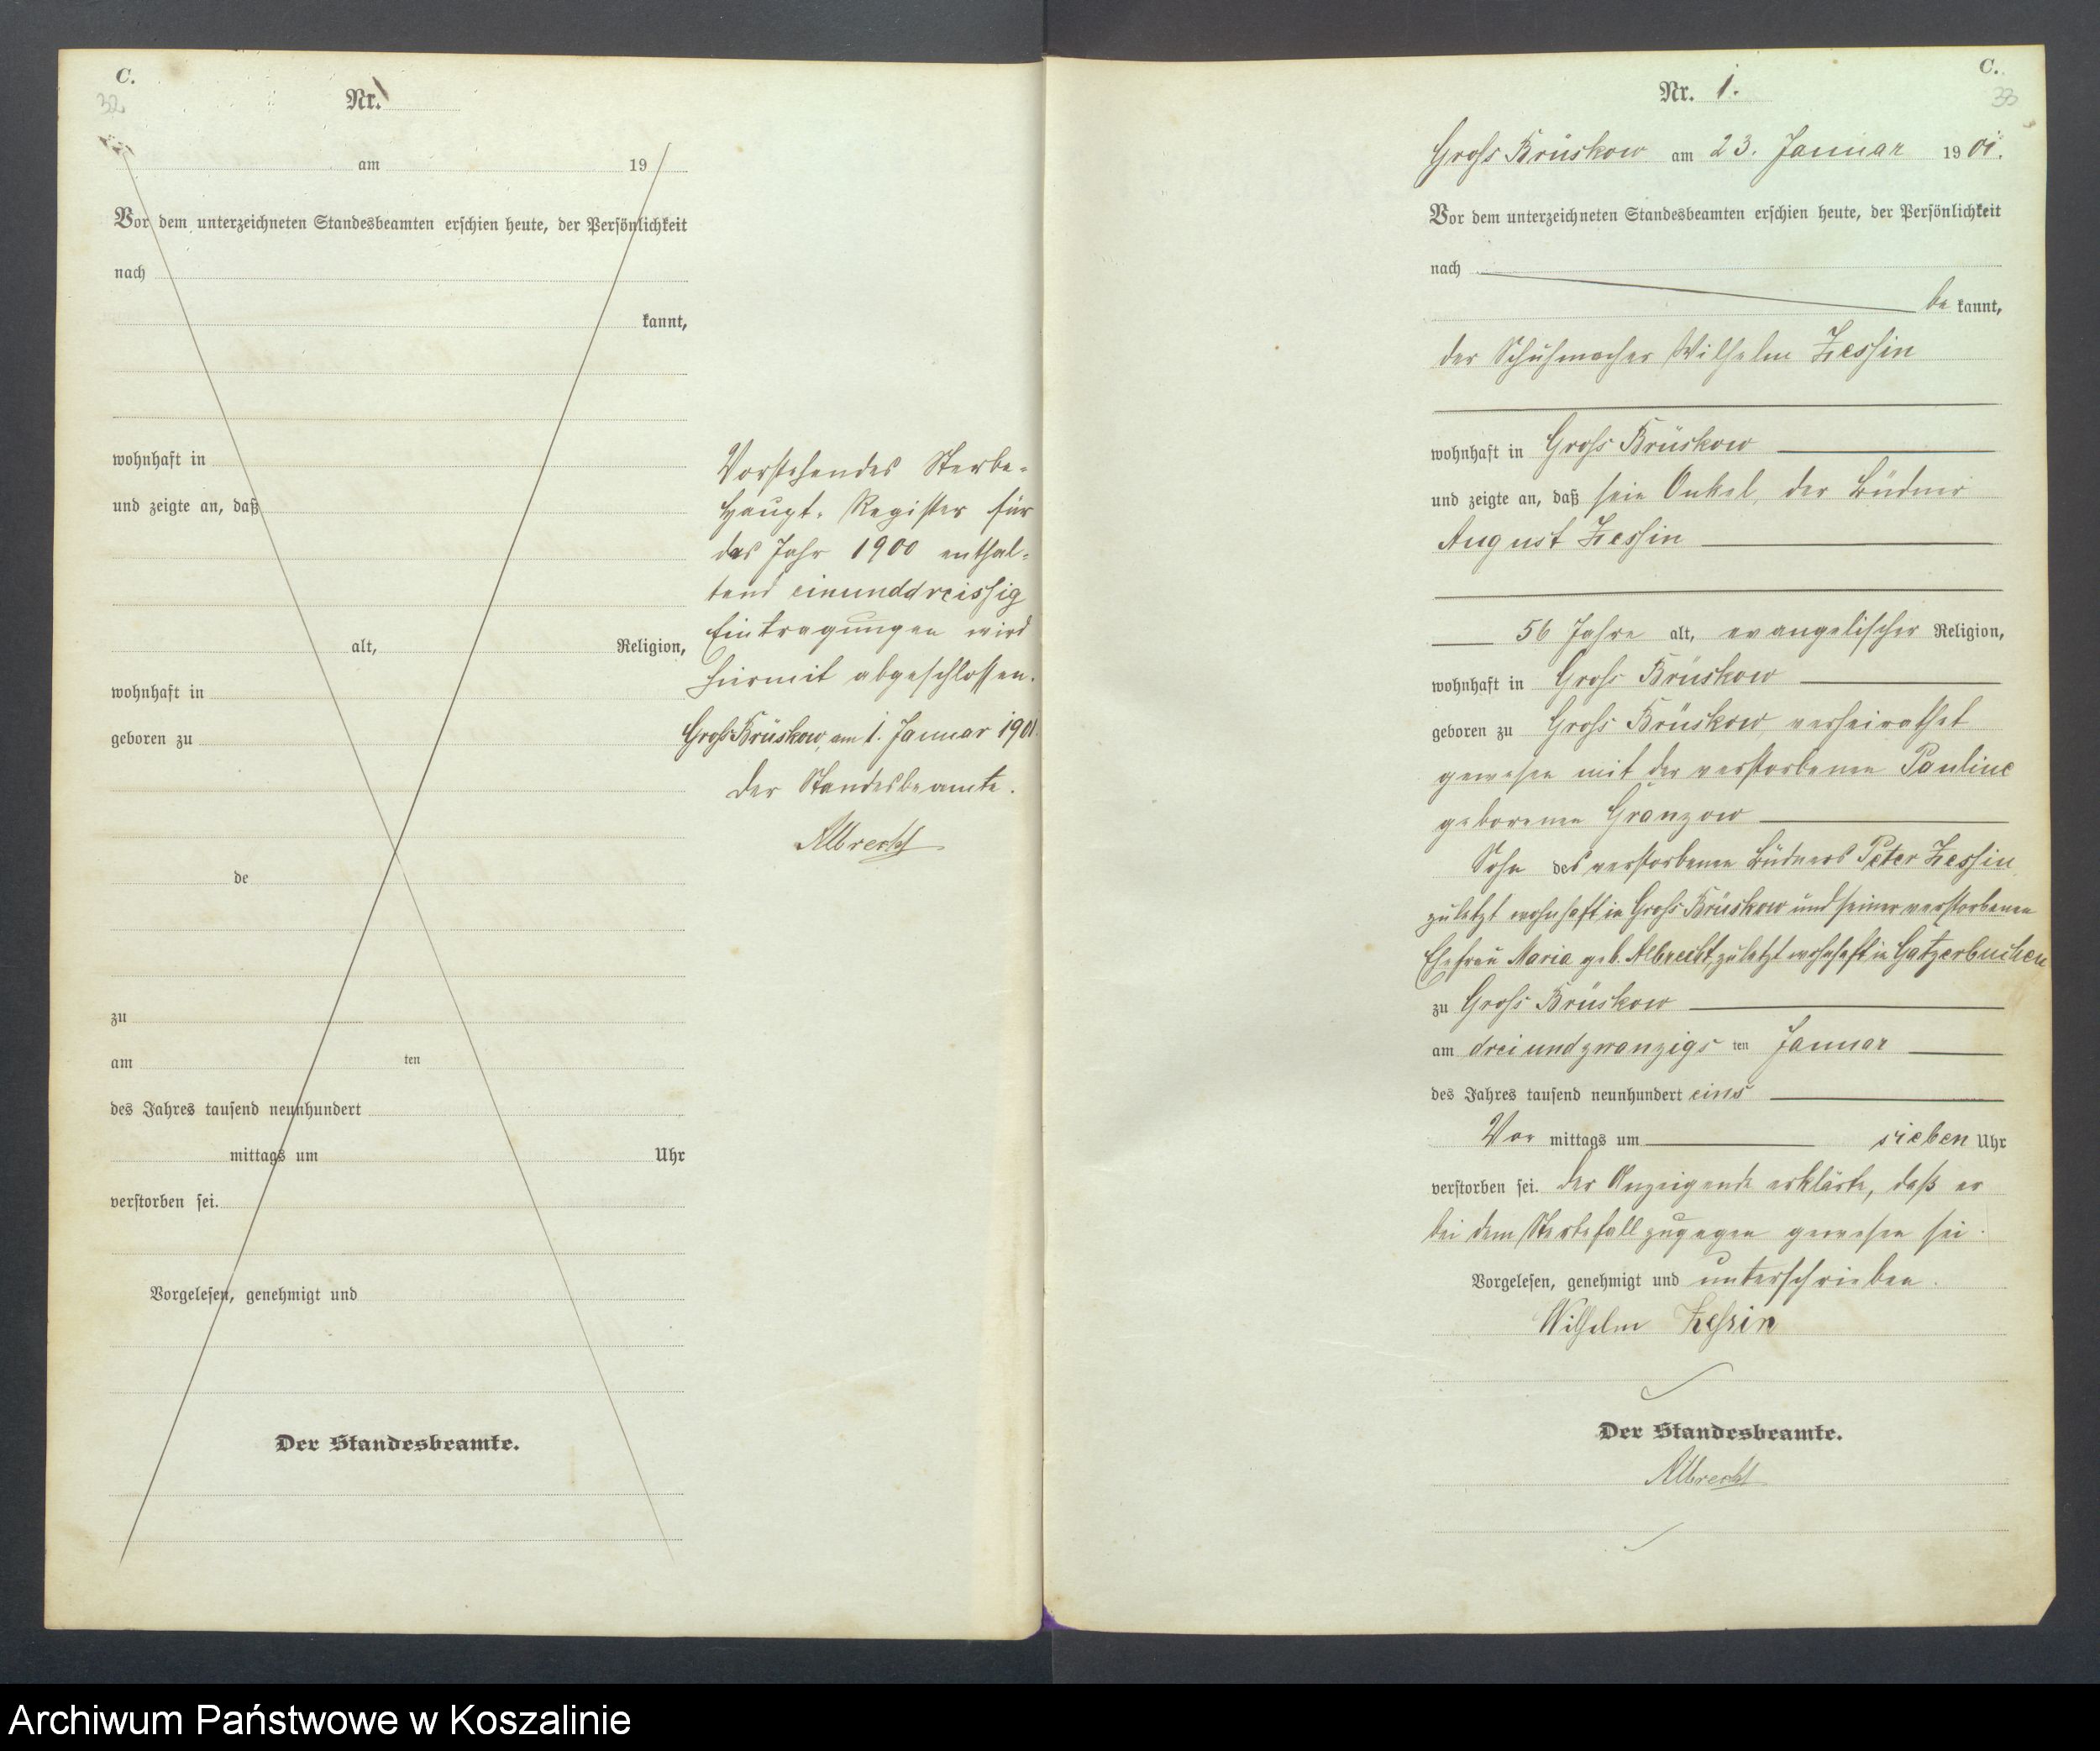 C.
32
Nr.
am 19
Vor dem unterzeichneten Standesbeamten erschien heute, der Persönlichkeit
nach
kannt,
wohnhaft in
und zeigte an, daß
alt, Religion,
wohnhaft in
geboren zu
de
zu
am ten
des Jahres tausend neunhundert
mittags um Uhr
verstorben sei.
Vorgelesen, genehmigt und
Der Standesbeamte.
Vorstehendes Sterbe-
Haupt-Register für
das Jahr 1900 enthal-
tend einunddreissig
Eintragungen wird
hiermit abgeschlossen.
Groß Brüskow, am 1. Januar 1901.
Der Standesbeamte.
Albrecht
C.
33
Nr. 1.
Groß Brüskow am 23. Januar 1901.
Vor dem unterzeichneten Standesbeamten erschien heute, der Persönlichkeit
nach
be kannt,
der Schuhmacher Wilhelm Zessin
wohnhaft in Groß Brüskow
und zeigte an, daß sein Onkel, der Büdner
August Zessin
56 Jahre alt, evangelischer Religion,
wohnhaft in Groß Brüskow
geboren zu Groß Brüskow, verheirathet
gewesen mit der verstorbenen Pauline
geborenen Granzow
Sohn des verstorbenen Büdners Peter Zessin,
zuletzt wohnhaft in Groß Brüskow und seiner verstorbenen
Ehefrau Maria geb. Albrecht, zuletzt wohnhaft in Gatzerbuchen
zu Groß Brüskow
am dreiundzwanzigs ten Januar
des Jahres tausend neunhundert eins
Vor mittags um sieben Uhr
verstorben sei. Der Anzeigende erklärte, daß er
bei dem Sterbefall zugegen gewesen sei.
Vorgelesen, genehmigt und unterschrieben.
Wilhelm Zessin
Der Standesbeamte.
Albrecht
Archiwum Państwowe w Koszalinie